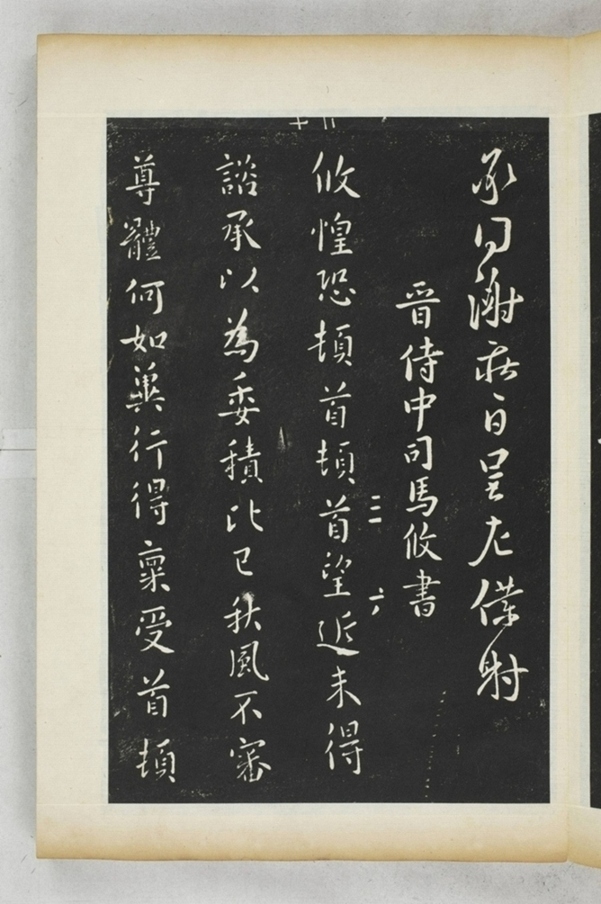 承問謝莊白呈左僕射
晉侍中司馬攸書
攸惶恐頓首頓首望近未得
諮承以為委積比已秋風不審
尊體何如冀行得稟受首頓